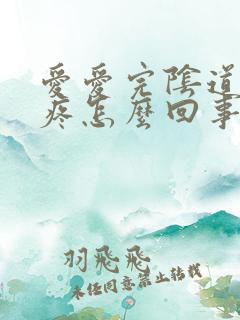 愛愛完陰道
疼怎麼回事
羽飛飛
未經同意禁止轉載